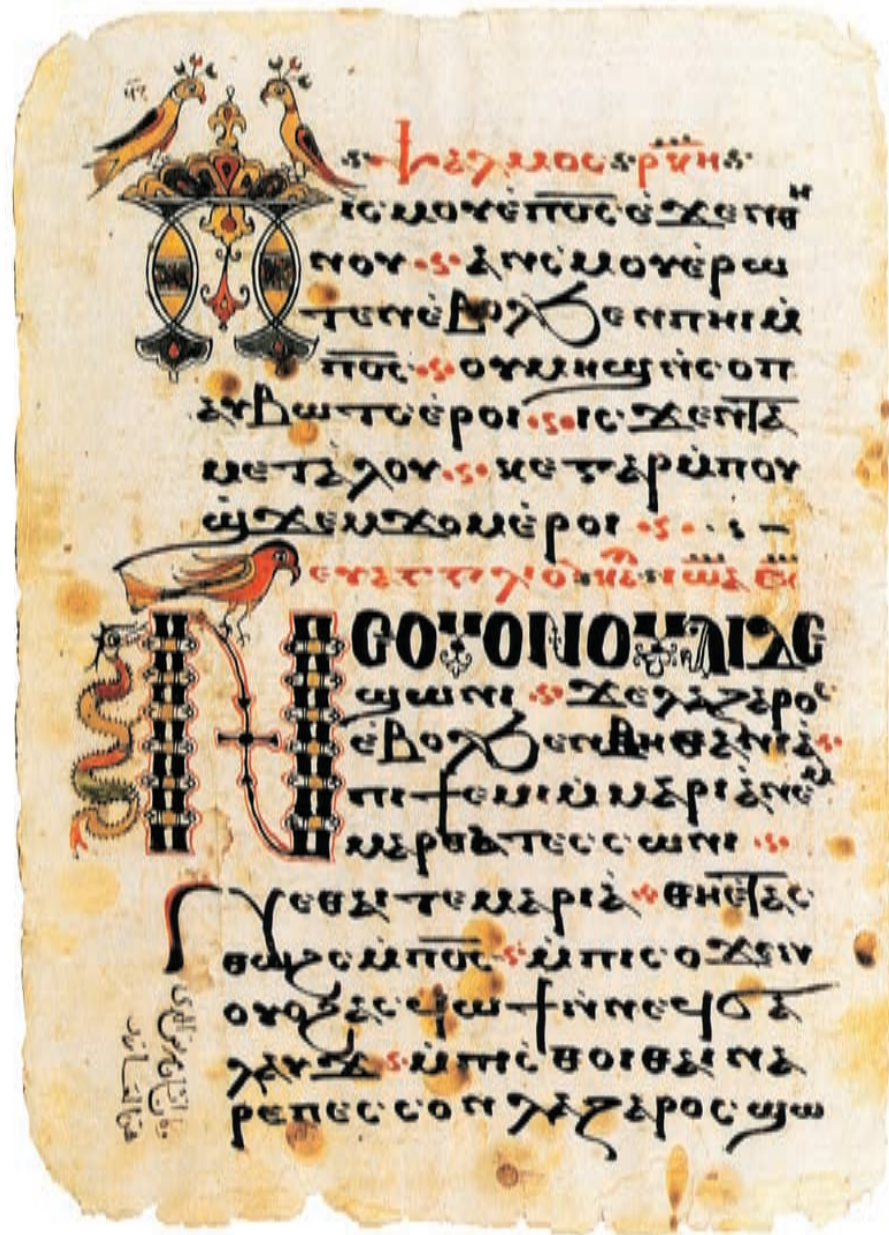 Ⲯⲁⲗⲙⲟⲥ ⲣ̅ⲕ̅ⲏ̅
Ⲡⲓⲥⲙⲟⲩ ⲉ̀ⲡⲟ̅ⲥ̅ ⲉ̀ϫⲉⲛⲑⲏ
ⲛⲟⲩ · ⲁⲛⲥ̀ⲙⲟⲩ ⲉ̀ⲣⲱ
ⲧⲉⲛ ⲉ̀ⲃⲟⲗϧⲉⲛ ⲡⲏⲓ ⲙ̀
ⲡⲟ̅ⲥ̅ · ⲟⲩⲙⲏϣ ⲛ̀ⲥⲟⲡ
ⲁⲩⲃⲱⲧⲥ ⲉ̀ⲣⲟⲓ · ⲓⲥϫⲉⲛ ⲧⲁ
ⲙⲉⲧⲁ̀ⲗⲟⲩ · ⲕⲉ ⲅⲁⲣ ⲙ̀ⲡⲟⲩ
ϣϫⲉⲙϫⲟⲙ ⲉ̀ⲣⲟⲓ ·
Ⲛⲉ ⲟⲩⲟⲛ ⲟⲩⲁⲓ ⲇⲉ
ϣⲱⲛⲓ · ϫⲉ ⲗⲁⲍⲁⲣⲟⲥ
ⲉ̀ⲃⲟⲗϧⲉⲛ ⲃⲏⲑⲁⲛⲓⲁ̀ ·
ⲡⲓϯⲙⲓ ⲙ̀ⲙⲁⲣⲓⲁ̀ ⲛⲉⲙ
ⲙⲁⲣⲑⲁ ⲧⲉⲥⲥⲱⲛⲓ ·
Ⲛⲉ ⲑⲁⲓ ⲧⲉ ⲙⲁⲣⲓⲁ̀ · ⲑⲏⲉ̀ⲧⲁⲥ
ⲑⲱϩⲥ ⲙ̀ⲡⲟ̅ⲥ̅ · ⲙ̀ⲡⲓⲥⲟϫⲉⲛ
ⲟⲩⲟϩ ⲁⲥϥⲱϯ ⲛ̀ⲛⲉϥϭⲁ
ⲗⲁⲩϫ · ⲙ̀ⲡⲓⲥ̀ⲑⲟⲓ ⲑⲁⲓ ⲛⲁ
ⲣⲉ ⲡⲉⲥⲥⲟⲛ ⲗⲁⲍⲁⲣⲟⲥ ϣⲱ